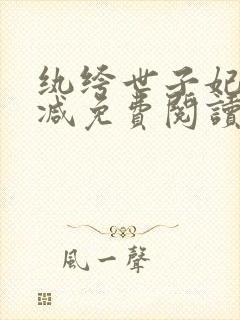 纨绔世子妃
减免費閱讀
風一聲